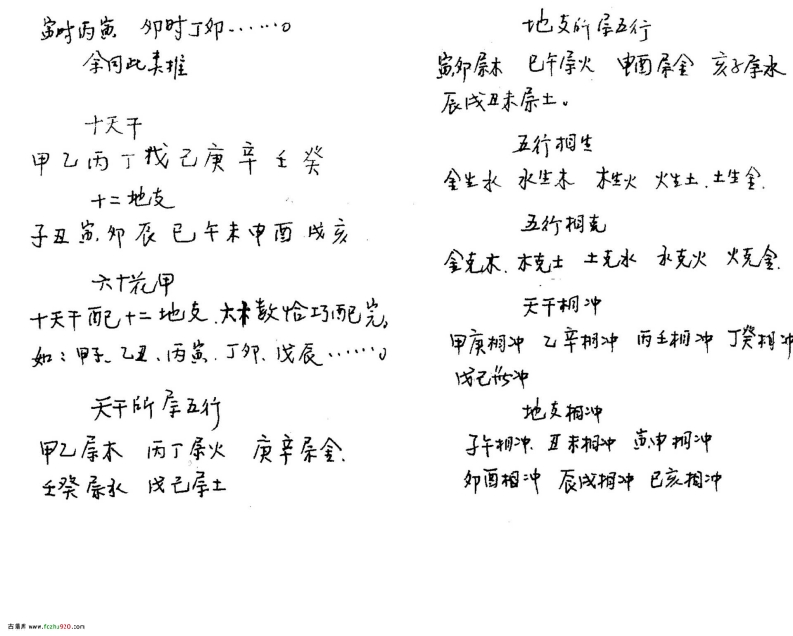 寅时丙寅 卯时丁卯……。
余同此类推
十天干
甲乙丙丁戊己庚辛壬癸
十二地支
子丑寅.卯辰巳午未申酉戌亥
六十花甲
十天干配十二地支、六十数恰巧配完。
如：甲子、乙丑、丙寅.丁卯.戊辰……。
天干所属五行
甲乙属木 丙丁属火 庚辛属金.
壬癸属水 戊己属土
地支所属五行
寅卯属木 巳午属火 申酉属金 亥子属水
辰戌丑未属土。
五行相生
金生水 水生木 木生火 火生土.土生金.
五行相克
金克木.木克土 土克水 水克火 火克金.
天干相冲
甲庚相冲 乙辛相冲 丙壬相冲 丁癸相冲
戊己所冲
地支相冲
子午相冲.丑未相冲 寅申相冲
卯酉相冲 辰戌相冲 巳亥相冲
古籍库 www.fczhu920.com